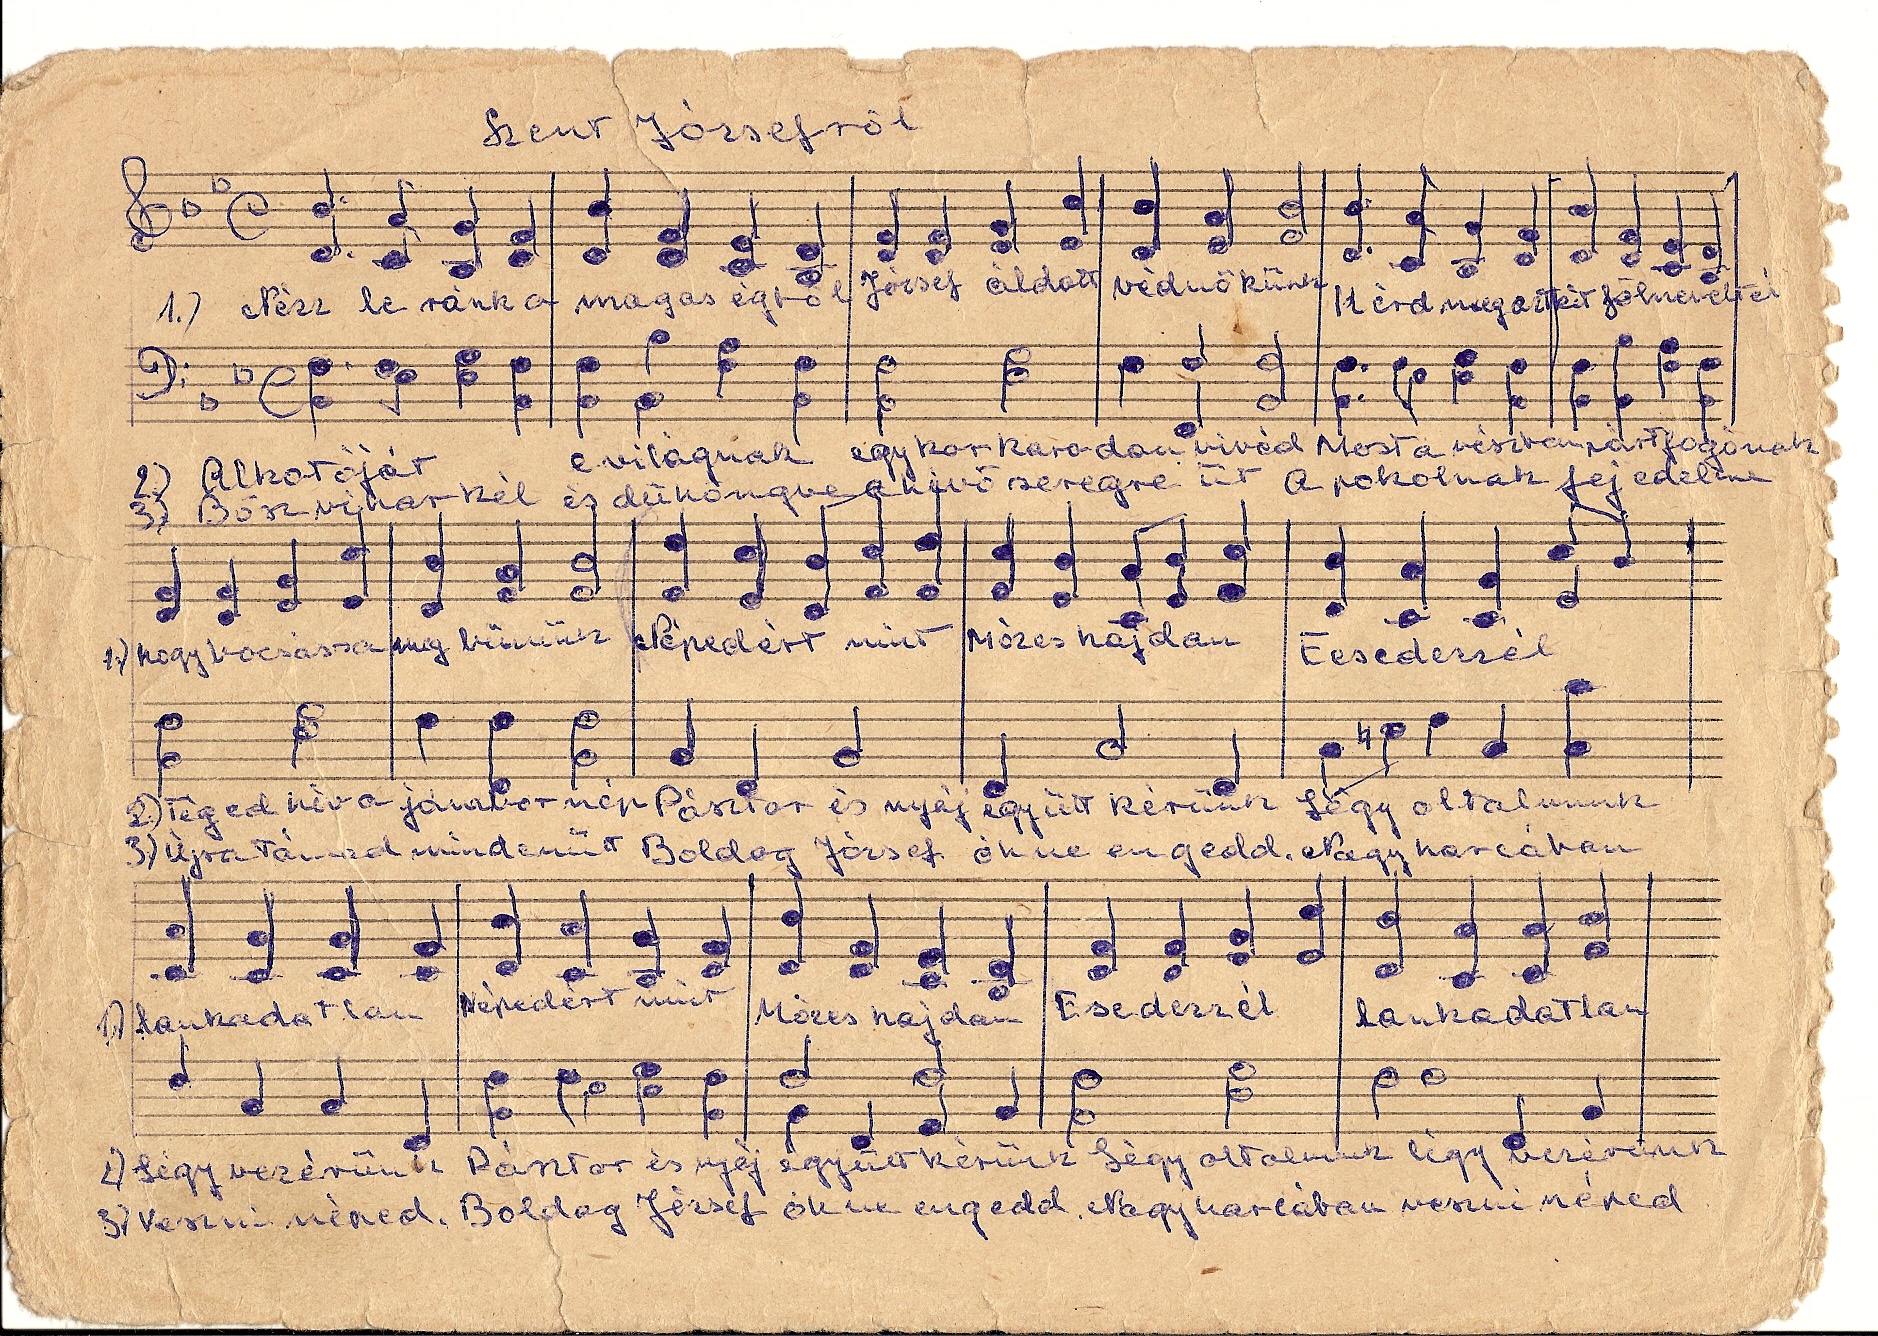 Szent Józsefről
1.) Nézz le ránk a magas égből József áldott védnökünk Kérd meg azt kit fölneveltél
2.) Alkotóját e világnak egykor karodon vivéd Most a vészben pártfogónak
3.) Bősz vihar kél és dühöngve a hivő seregre üt A pokolnak fejedelme
1.) hogy bocsássa meg bűnünk Népedért mint Mózes hajdan Eesedezzél
2.) Téged hív a jámbor nép Pásztor és nyáj együtt kérünk Légy oltalmunk
3.) Újra támad mindenütt Boldog József óh ne engedd. Nagy harcában
1.) lankadatlan Népedért mint Mózes hajdan Esedezzél lankadatlan
2.) Légy vezérünk Pásztor és nyáj együtt kérünk Légy oltalmunk légy vezérünk
3.) Veszni néped. Boldog József óh ne engedd. Nagy harcában veszni néped